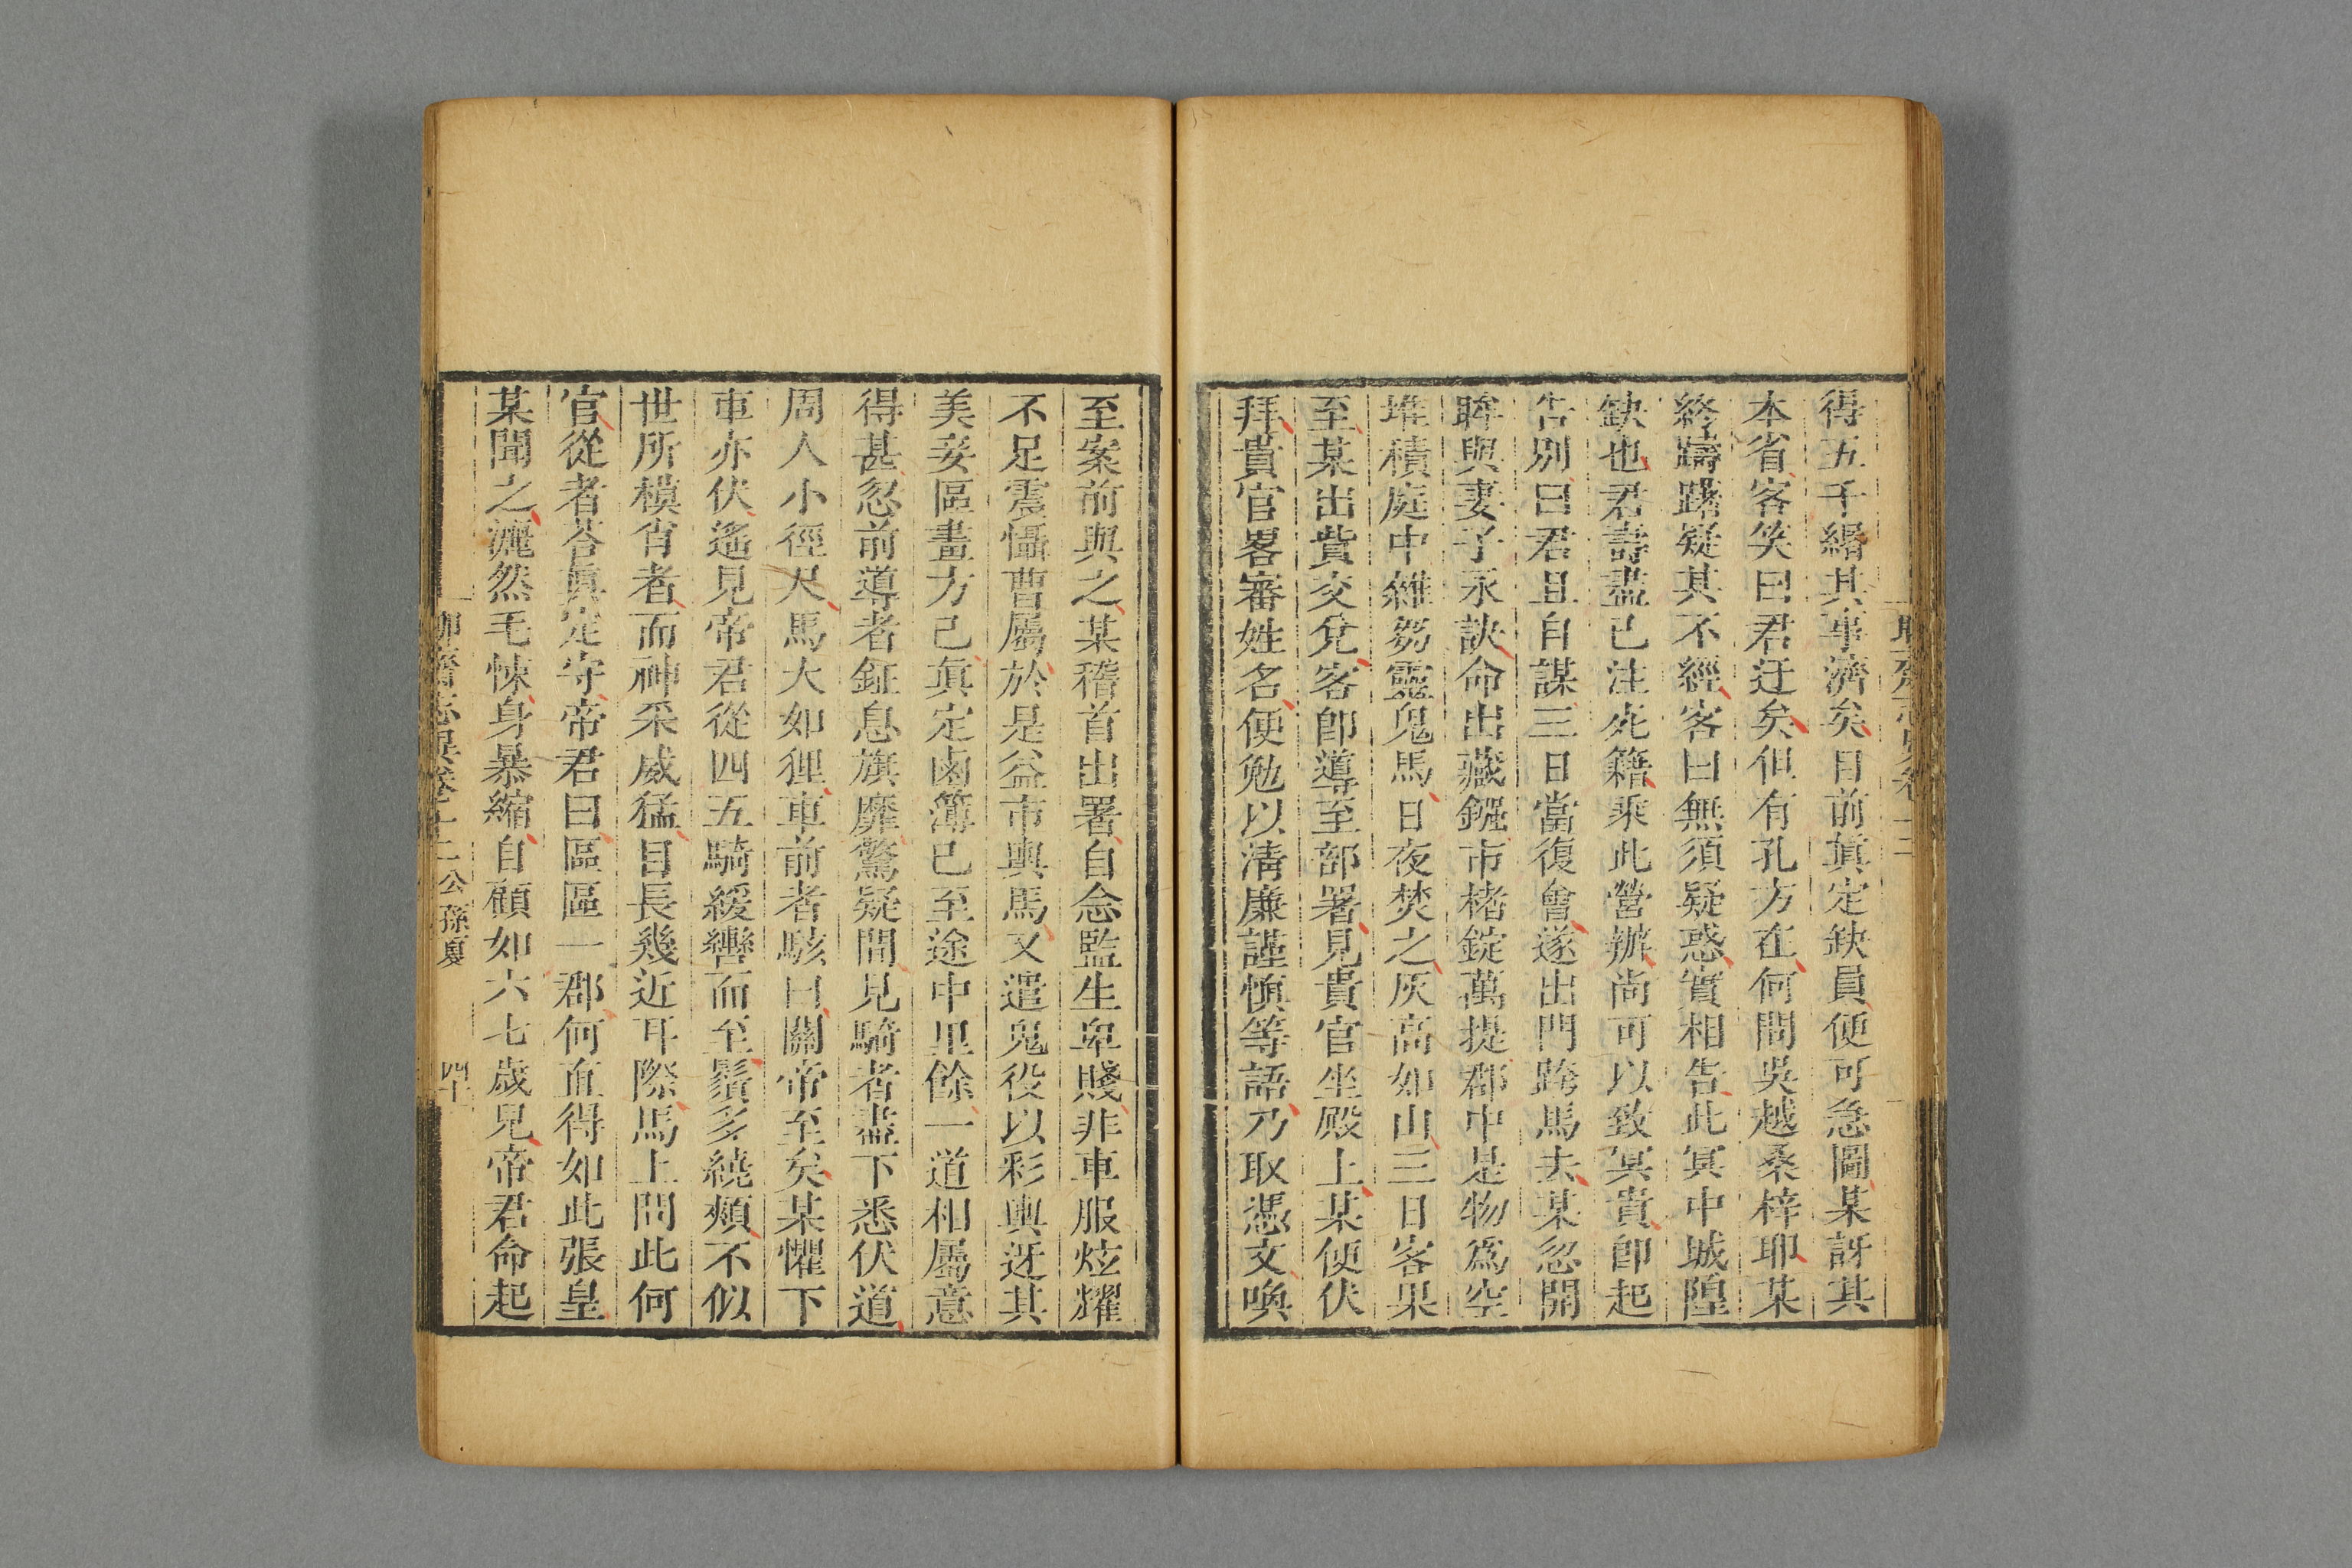 得五千緡其事濟矣目前真定缺員便可急圖某訝其
本省客笑曰君迂矣但有孔方在何問吳越桑梓耶某
終躊躇疑其不經客曰無須疑惑實相告此冥中城隍
缺也君壽盡已注死籍乘此營辦尚可以致冥貴即起
告別曰君且自謀三日當復會遂出門跨馬去某忽開
眸與妻子永訣命出藏鏹市楮錠萬提郡中是物為空
堆積庭中雜芻靈鬼馬日夜焚之灰高如山三日客果
至某出貲交兌客即導至部署見貴官坐殿上某便伏
拜貴官畧審姓名便勉以清廉謹慎等語乃取憑文喚
至案前與之某稽首出署自念監生卑賤非車服炫耀
不足震懾曹屬於是益市輿馬又遣鬼役以彩輿迓其
美妾區畫方已真定鹵簿已至途中里餘一道相屬意
得甚忽前導者鉦息旗靡驚疑間見騎者盡下悉伏道
周人小徑尺馬大如狸車前者駭曰關帝至矣某懼下
車亦伏遙見帝君從四五騎緩轡而至鬚多繞頰不似
世所模肖者而神采威猛目長幾近耳際馬上問此何
官從者荅真定守帝君曰區區一郡何直得如此張皇
某聞之灑然毛悚身暴縮自顧如六七歲兒帝君命起
聊齋志異卷十二 公孫夏 四十